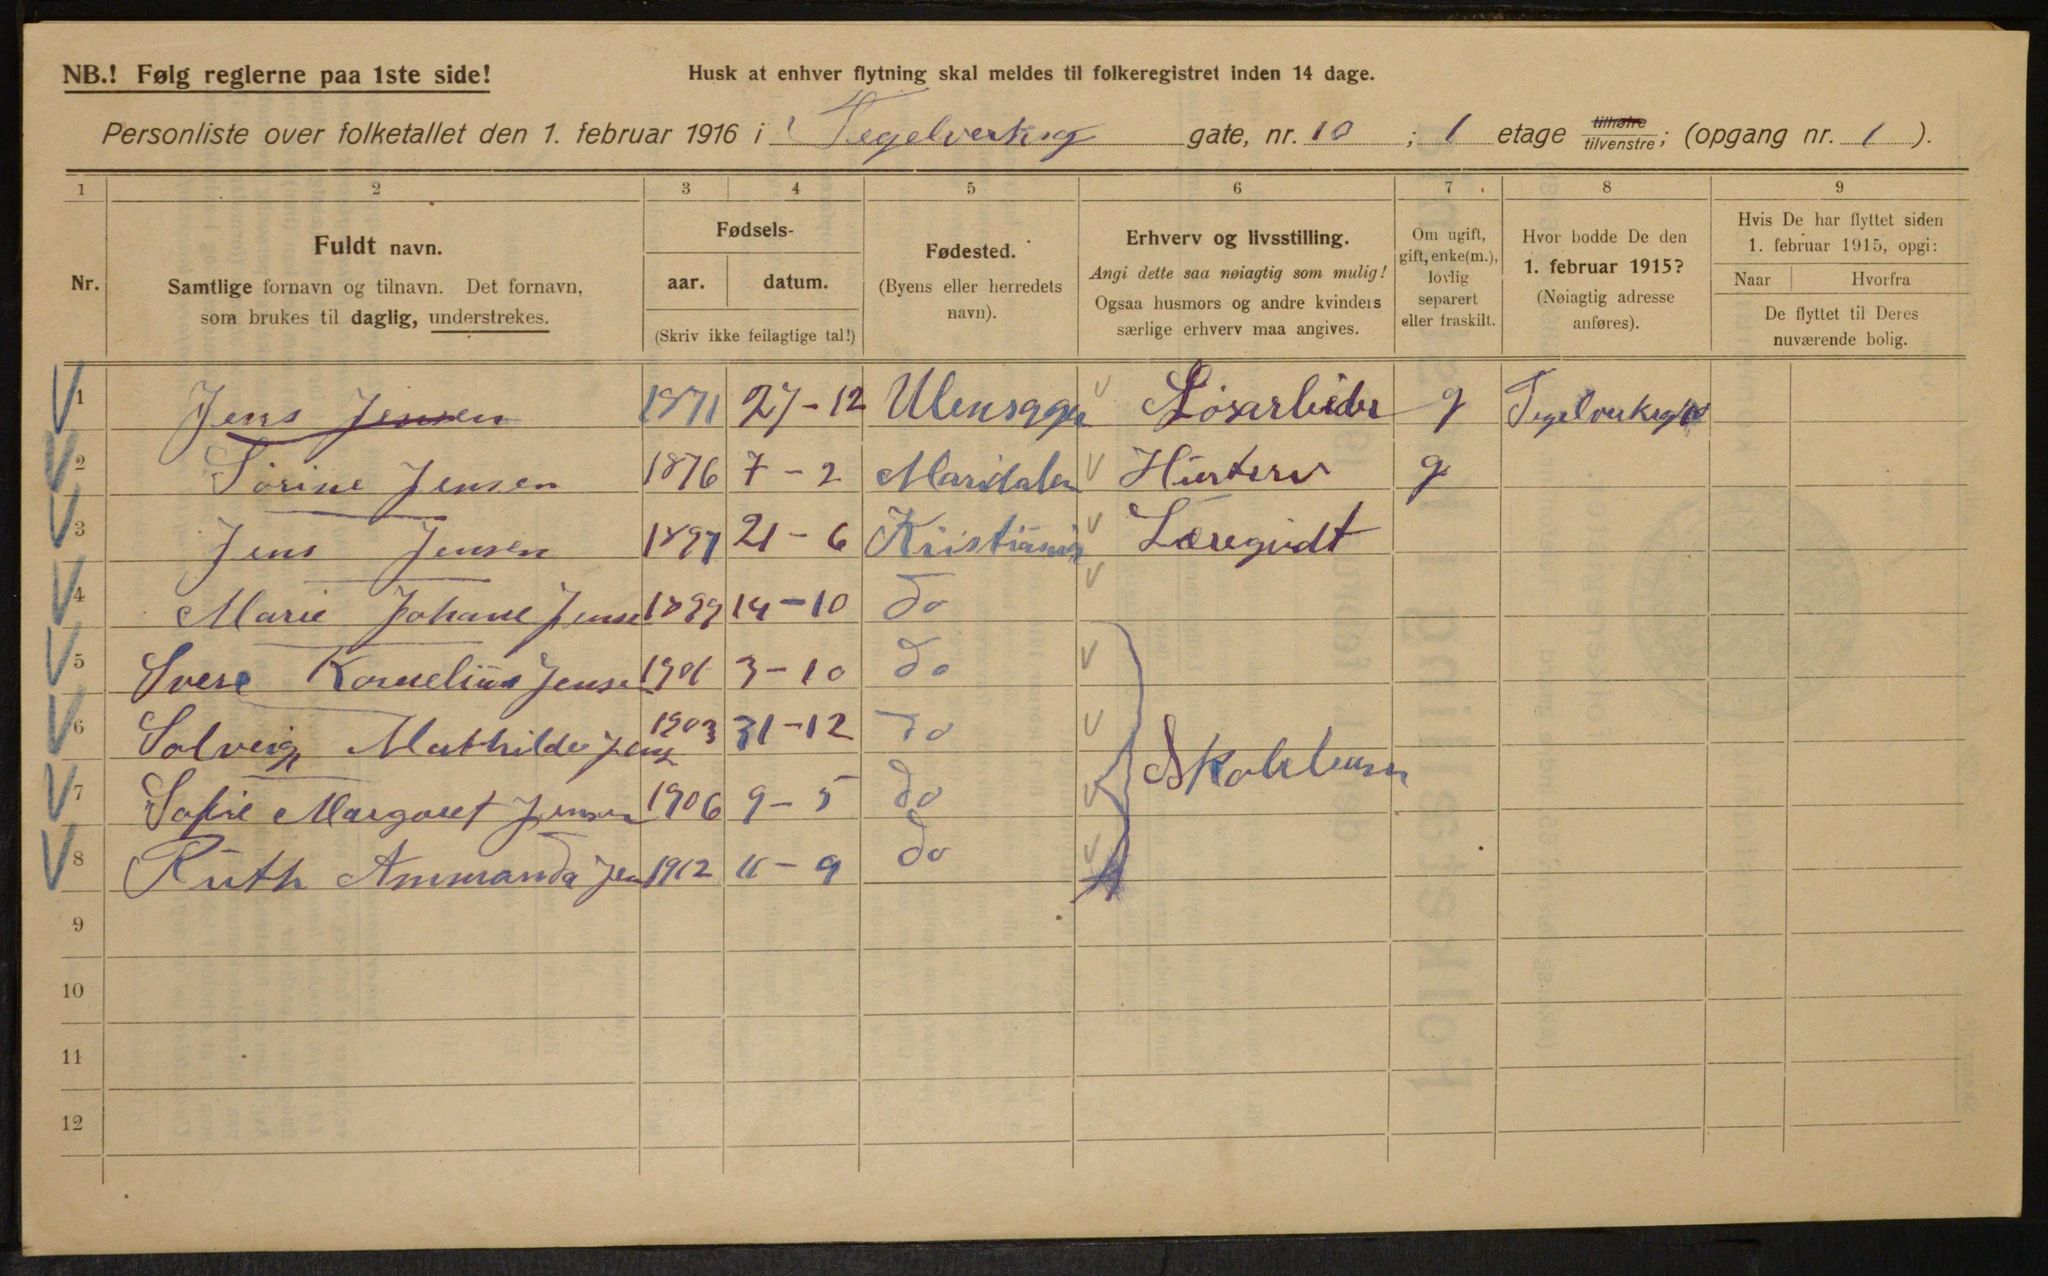 NB.! Følg reglerne paa 1ste side!
Husk at enhver flytning skal meldes til folkeregistret inden 14 dage.
Personliste over folketallet den 1. februar 1916 i Tegelverksg gate, nr. 10 ; 1 etage tilhøire tilvenstre; (opgang nr. 1 ).
1 2 3 4 5 6 7 8 9
Nr.
Fuldt navn.
Samtlige fornavn og tilnavn. Det fornavn,
som brukes til daglig, understrekes.
Fødsels-
aar. datum.
(Skriv ikke feilagtige tal!)
Fødested.
(Byens eller herredets
navn).
Erhverv og livsstilling.
Angi dette saa nøiagtig som mulig!
Ogsaa husmors og andre kvinders
særlige erhverv maa angives.
Om ugift,
gift, enke(m.),
lovlig
separert
eller fraskilt.
Hvor bodde De den
1. februar 1915?
(Nøiagtig adresse
anføres).
Hvis De har flyttet siden
1. februar 1915, opgi:
Naar Hvorfra
De flyttet til Deres
nuværende bolig.
1 Jens Jensen 1871 27-12 Ulensager Løsarbeider g Tegelverksgt
2 Sorine Jensen 1876 7-2 Maridalen g
3 Jens Jensen 1897 21-6 Kristiania Læregudt
4 Marie Johane Jense 1899 14-10 do
5 Svere Kornelius Jensen 1901 3-10 do
6 Solveig Mathilde Jens 1903 31-12 do
Skolebarn
7 Sofie Margaret Jensen 1906 9-5 do
8 Ruth Ammanda Jen 1912 11-9 do
9
10
11
12